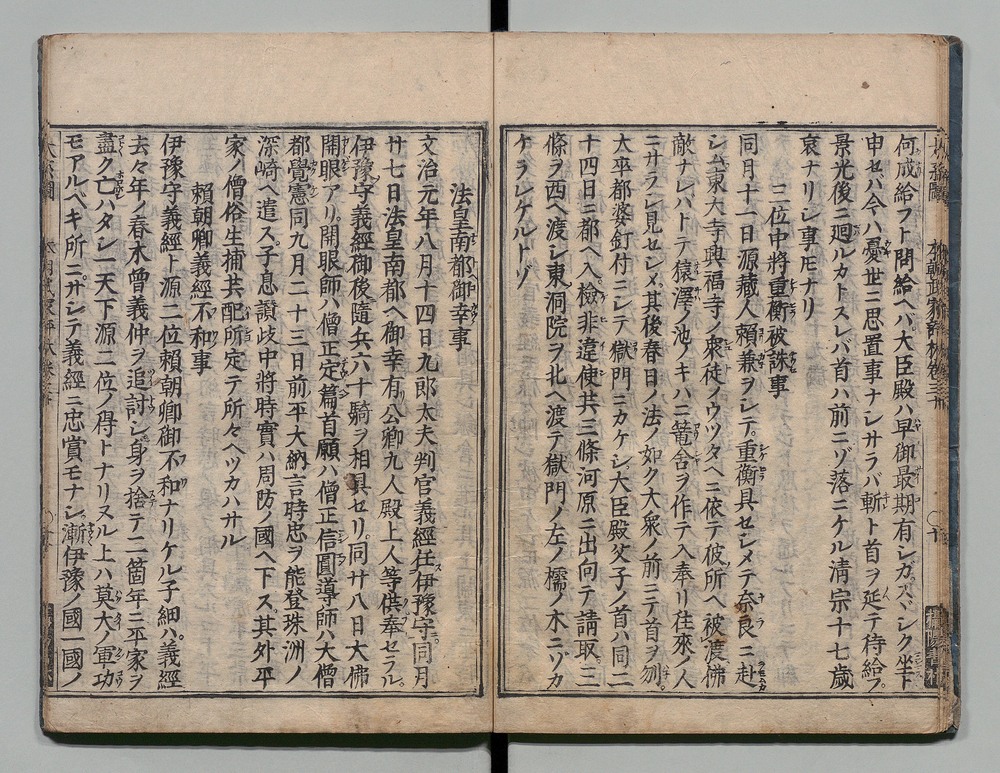 何成給フト問給ヘバ大臣殿ハ早御最期有シガスヾシク坐テ
申セバ今ハ憂世ニ思置事ナシサラバ斬ト首ヲ延テ待給フ
景光後ニ廻ルカトスレバ首ハ前ニゾ落ニケル清宗十七歳
哀ナリシ事𪜈ナリ
三位中將重衡被誅事
同月十一日源藏人頼兼ヲシテ重衡具セシメテ奈良ニ赴
シム東大寺興福寺ノ衆徒ノウツタヘニ依テ彼所ヘ被渡佛
敵ナレバトテ猿澤ノ池ノキハニ篭舎ヲ作テ入奉リ往來ノ人
ニサラシ見セシメ其後春日ノ法ノ如ク大衆ノ前ニテ首ヲ刎
太卒都婆釘付ニシテ獄門ニカケシ大臣殿父子ノ首ハ同二
十四日ニ都ヘ入檢非違使共三條河原ニ出向テ請取三
條ヲ西ヘ渡シ東洞院ヲ北ヘ渡テ獄門ノ左ノ樗ノ木ニゾカ
ケラレケルトゾ
法皇南都御幸事
文治元年八月十四日九郎太夫判官義經任伊豫守同月
廿七日法皇南都ヘ御幸有公卿九人殿上人等供奉セラル
伊豫守義經御後隨兵六十騎ヲ相具セリ同廿八日大佛
開眼アリ開眼師ハ僧正定篇首願ハ僧正信圓導師ハ大僧
都覺憲同九月二十三日前平大納言時忠ヲ能登珠洲ノ
深崎ヘ遣ス子息讃歧中將時實ハ周防ノ國ヘ下ス其外平
家ノ僧俗生捕共配所定テ所々ヘツカハサル
頼朝卿義經不和事
伊豫守義經ト源二位頼朝卿御不和ナリケル子細ハ義經
去々年ノ春木曾義仲ヲ追討シ身ヲ捨テ二箇年ニ平家ヲ
盡ク亡ハタシ一天下源二位ノ得トナリヌル上ハ莫大ノ軍功
モアルベキ所ニサシテ義經ニ忠賞モナシ漸伊豫ノ國一國ノ